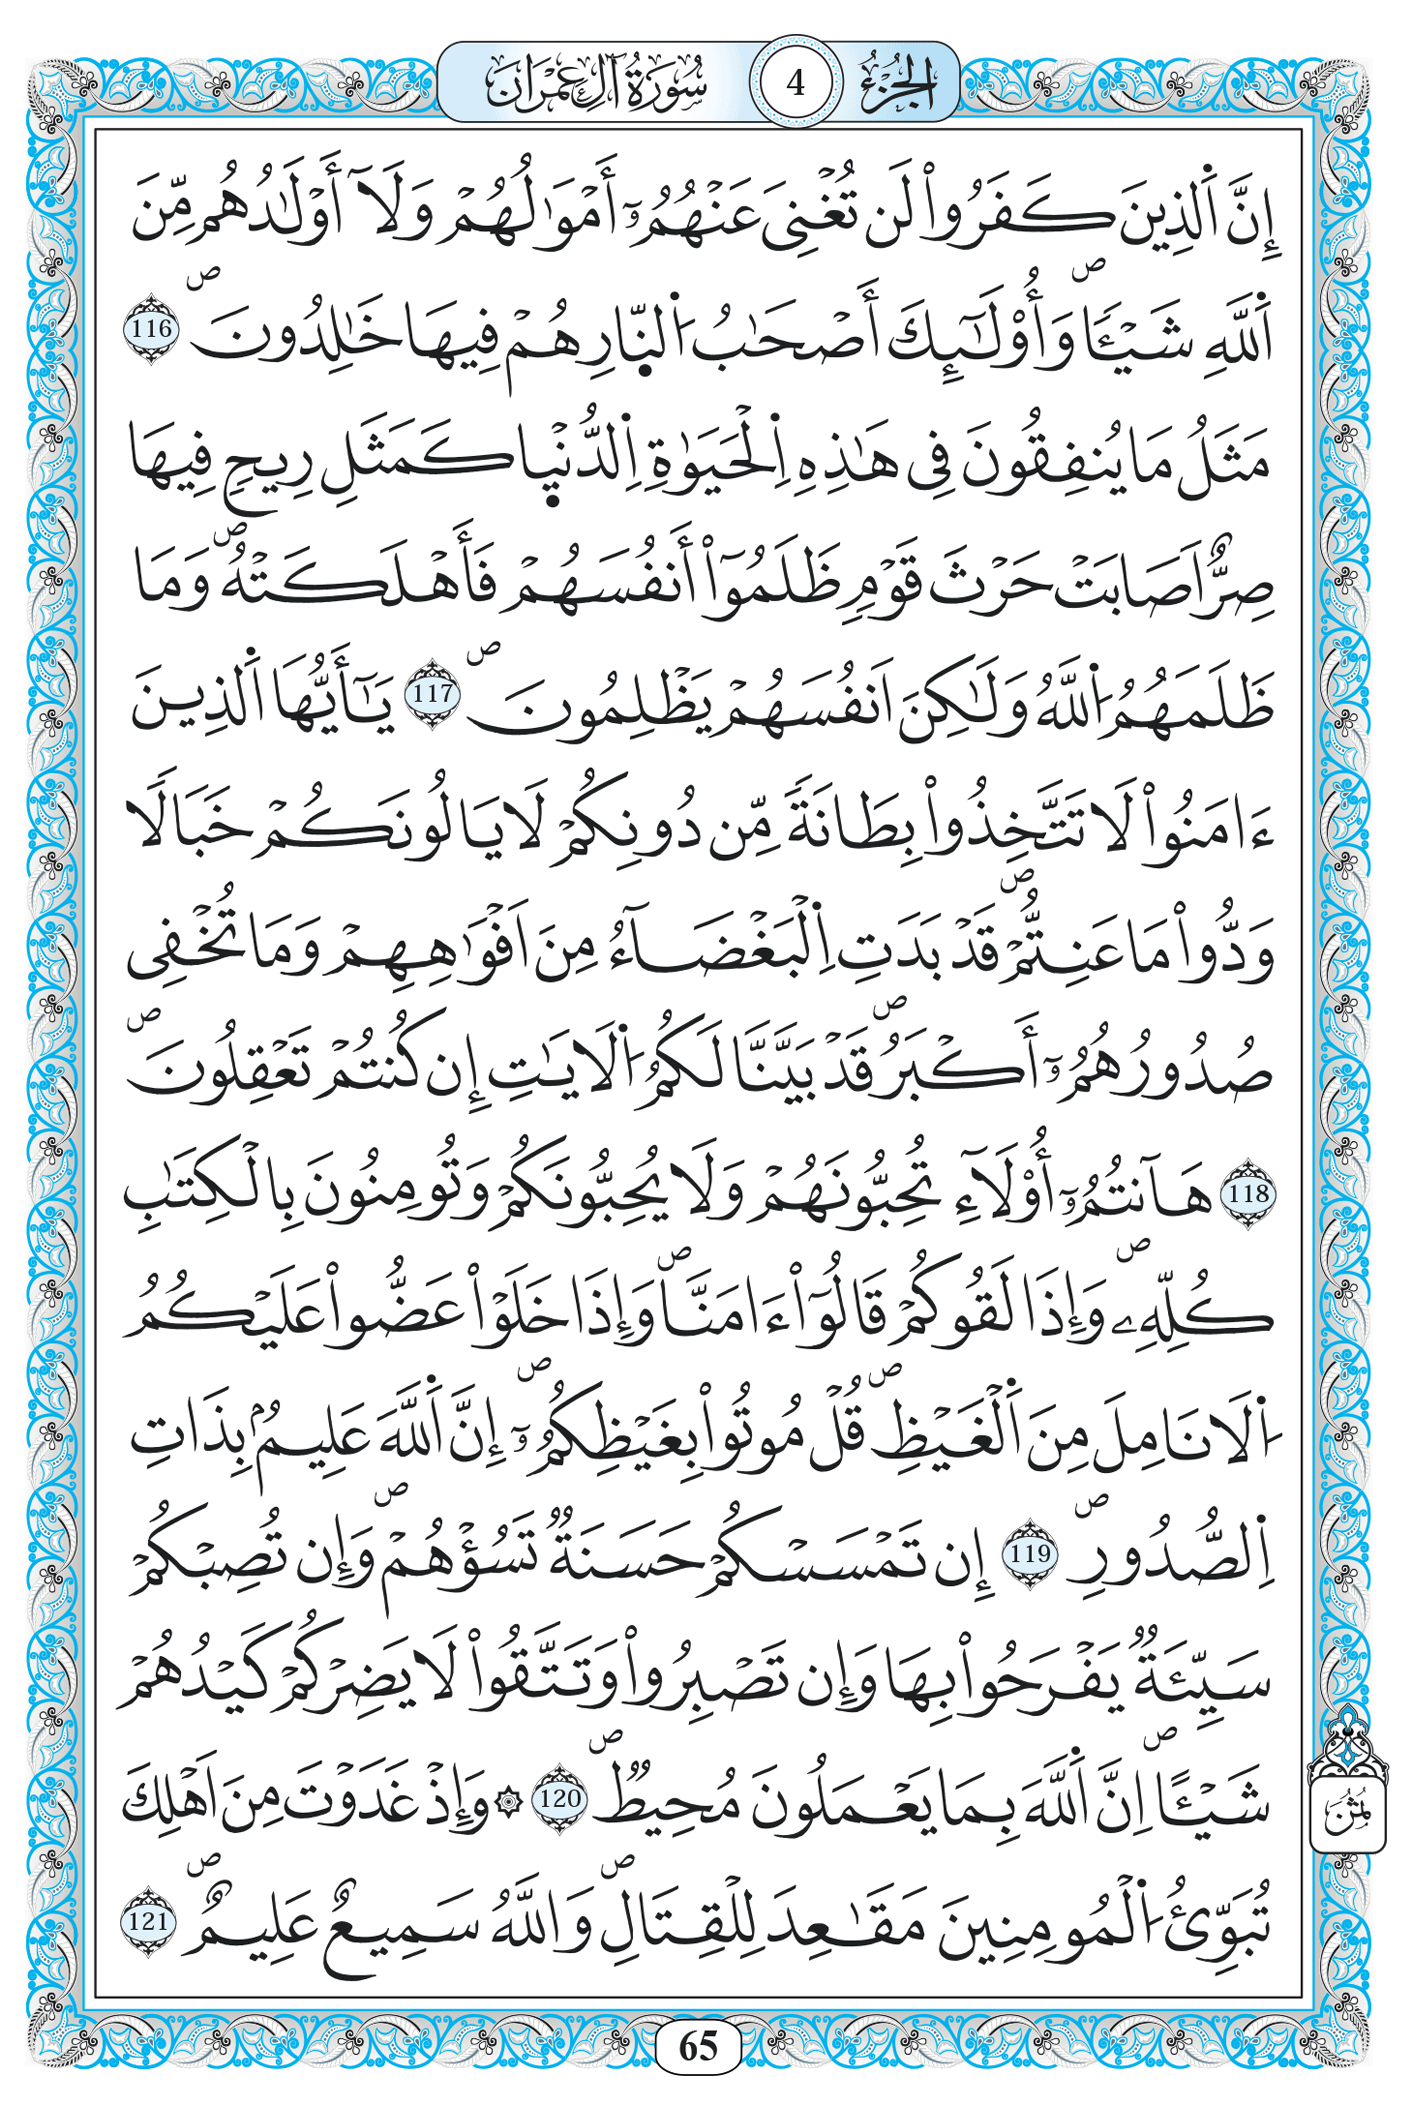 الجزء 4 سورة آل عمران
إِنَّ اَ۬لذِينَ كَفَرُواْ لَن تُغْنِيَ عَنْهُمُۥٓ أَمْوَٰلُهُمْ وَلَآ أَوْلَٰدُهُم مِّنَ
اَ۬للَّهِ شَيْـٔاٗۖ وَأُوْلَٰٓئِكَ أَصْحَٰبُ اُ۬لنّ۪ارِ هُمْ فِيهَا خَٰلِدُونَۖ 116
مَثَلُ مَا يُنفِقُونَ فِي هَٰذِهِ اِ۬لْحَيَوٰةِ اِ۬لدُّنْي۪ا كَمَثَلِ رِيحٖ فِيهَا
صِرٌّ اَصَابَتْ حَرْثَ قَوْمٖ ظَلَمُوٓاْ أَنفُسَهُمْ فَأَهْلَكَتْهُۖ وَمَا
ظَلَمَهُمُ اُ۬للَّهُ وَلَٰكِنَ اَنفُسَهُمْ يَظْلِمُونَۖ 117 يَٰٓأَيُّهَا اَ۬لذِينَ
ءَامَنُواْ لَا تَتَّخِذُواْ بِطَانَةٗ مِّن دُونِكُمْ لَا يَالُونَكُمْ خَبَالٗا
وَدُّواْ مَا عَنِتُّمْۖ قَدْ بَدَتِ اِ۬لْبَغْضَآءُ مِنَ اَفْوَٰهِهِمْ وَمَا تُخْفِي
صُدُورُهُمُۥٓ أَكْبَرُۖ قَدْ بَيَّنَّا لَكُمُ اُ۬لَايَٰتِ إِن كُنتُمْ تَعْقِلُونَۖ
118 هَآنتُمُۥٓ أُوْلَآءِ تُحِبُّونَهُمْ وَلَا يُحِبُّونَكُمْ وَتُومِنُونَ بِالْكِتَٰبِ
كُلِّهِۦۖ وَإِذَا لَقُوكُمْ قَالُوٓاْ ءَامَنَّاۖ وَإِذَا خَلَوْاْ عَضُّواْ عَلَيْكُمُ
اُ۬لَانَامِلَ مِنَ اَ۬لْغَيْظِۖ قُلْ مُوتُواْ بِغَيْظِكُمُۥٓۖ إِنَّ اَ۬للَّهَ عَلِيمُۢ بِذَاتِ
اِ۬لصُّدُورِۖ 119 إِن تَمْسَسْكُمْ حَسَنَةٞ تَسُؤْهُمْۖ وَإِن تُصِبْكُمْ
سَيِّئَةٞ يَفْرَحُواْ بِهَا وَإِن تَصْبِرُواْ وَتَتَّقُواْ لَا يَضِرْكُمْ كَيْدُهُمْ
شَيْـًٔاۖ اِنَّ اَ۬للَّهَ بِمَا يَعْمَلُونَ مُحِيطٞۖ 120 ۞ وَإِذْ غَدَوْتَ مِنَ اَهْلِكَ
تُبَوِّئُ اُ۬لْمُومِنِينَ مَقَٰعِدَ لِلْقِتَالِۖ وَاللَّهُ سَمِيعٌ عَلِيمٌۖ 121
ثمن
65